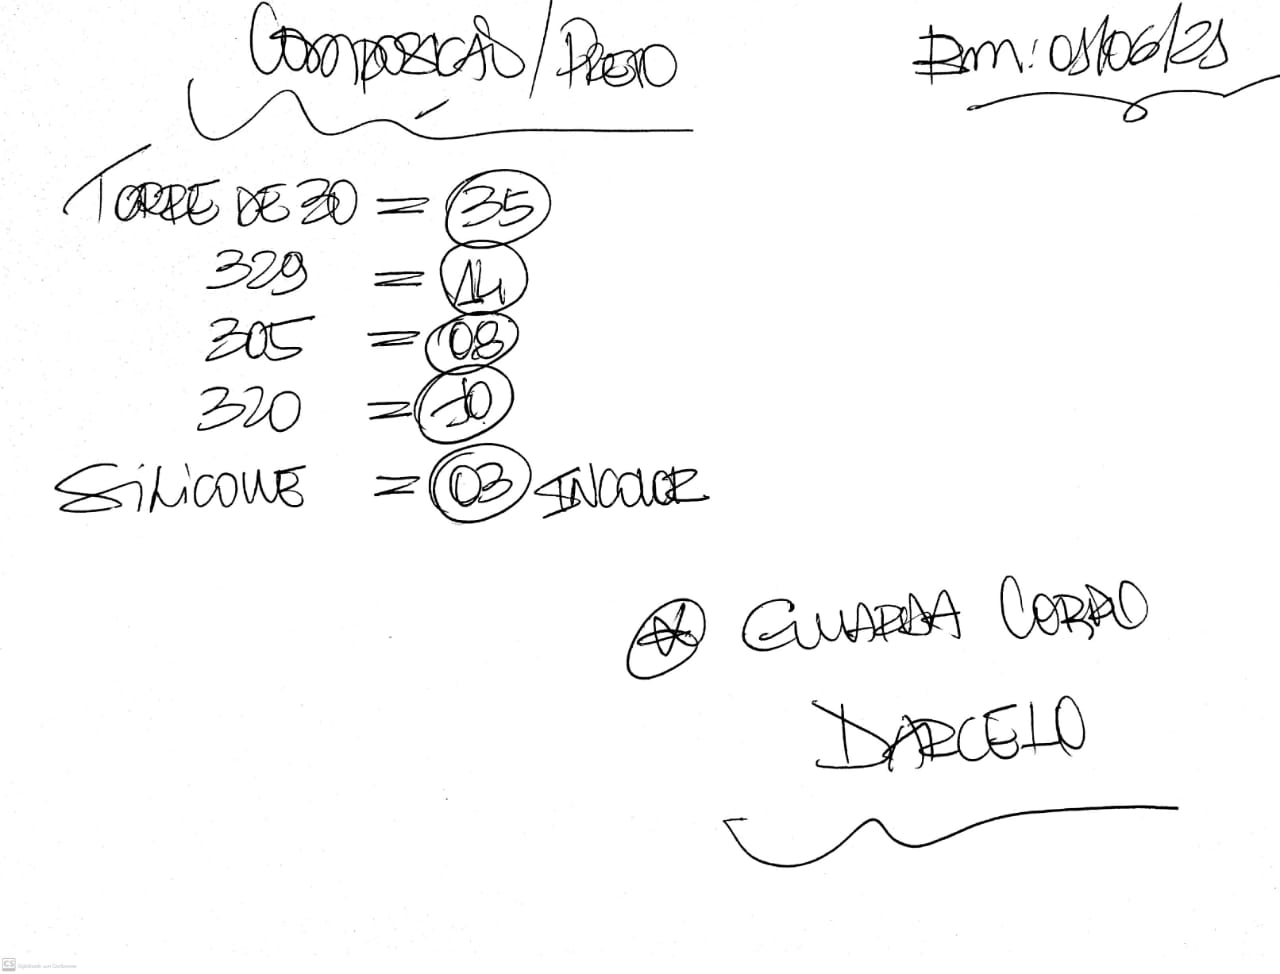 COMPOSIÇÃO / PRETO
BM: 01/06/21
TORRE DE 30 = 35
329 = 14
305 = 08
320 = 10
SILICONE = 03 INCOLOR
* GUARDA CORPO
DARCELO
CS